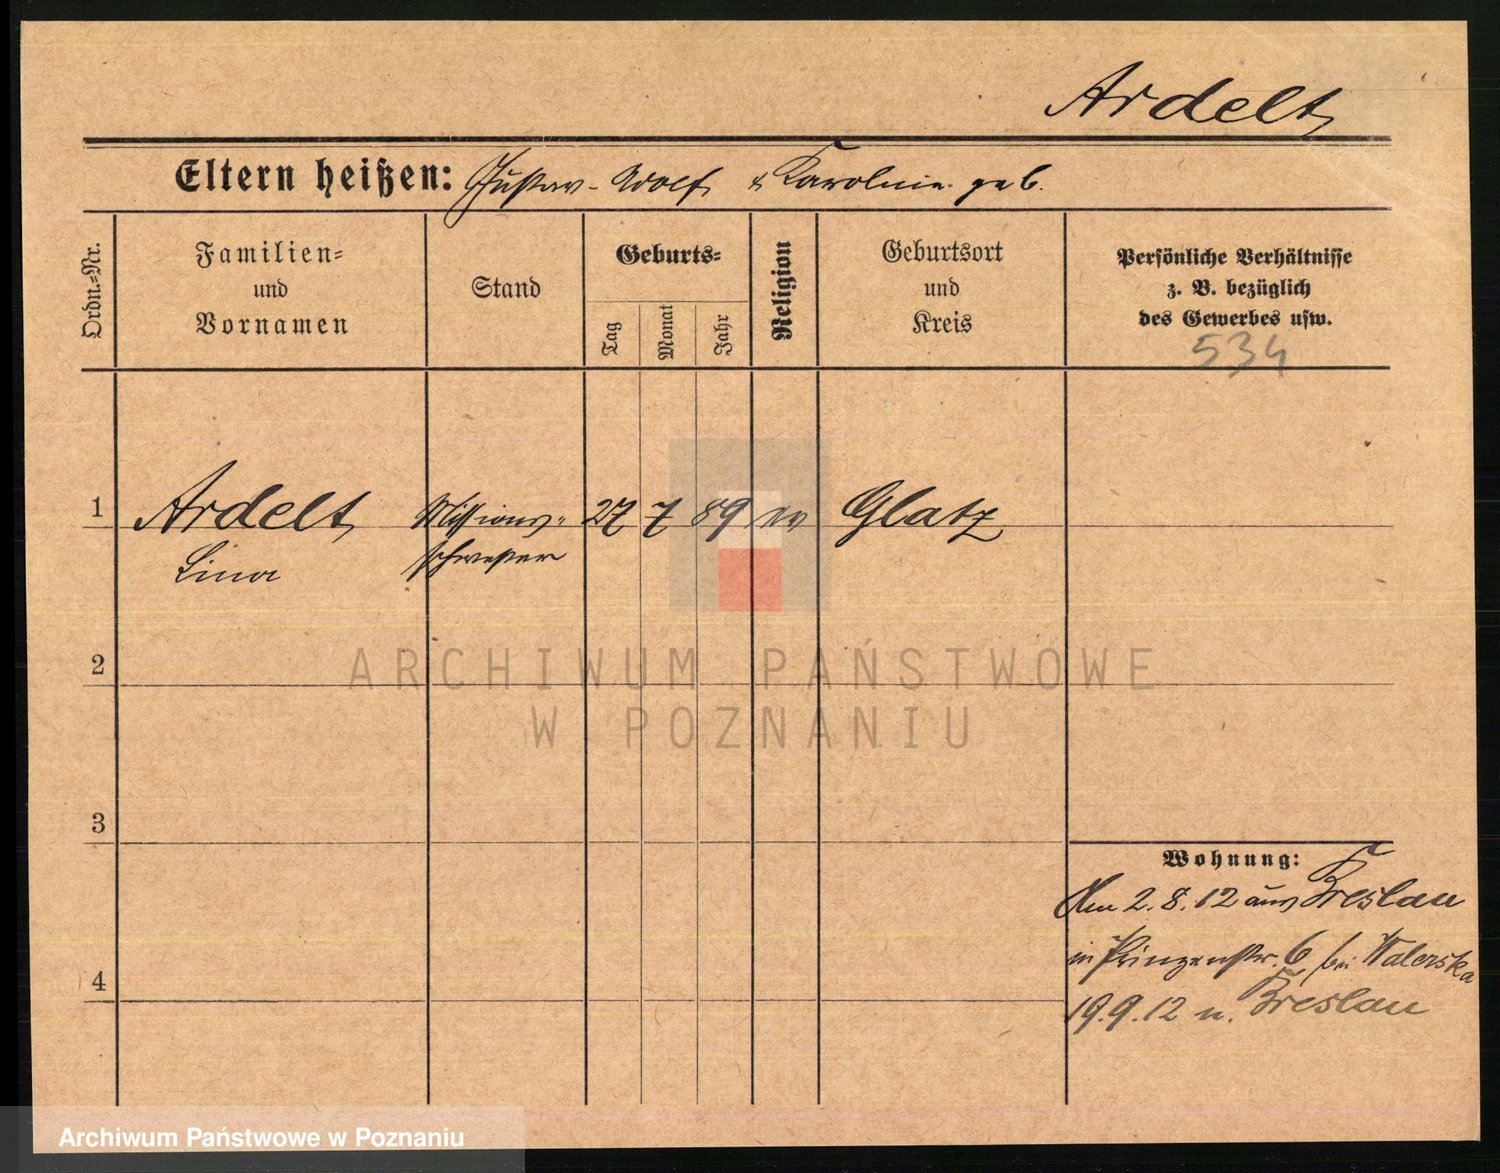 Ardelt
Eltern heißen: Gustav-Adolf & Karoline geb.
Ordn.=Nr.
Familien=
und
Vornamen
Stand
Geburts=
Tag
Monat
Jahr
Religion
Geburtsort
und
Kreis
Persönliche Verhältnisse
z. B. bezüglich
des Gewerbes usw.
534
1 Ardelt Missions= 27 7 89 ev Glatz
Lina schwester
2
3
4
Wohnung:
Am 2.8.12 aus Breslau
in Prinzenstr. 6 bei Walerska
19.9.12 n. Breslau
ARCHIWUM PAŃSTWOWE
W POZNANIU
Archiwum Państwowe w Poznaniu